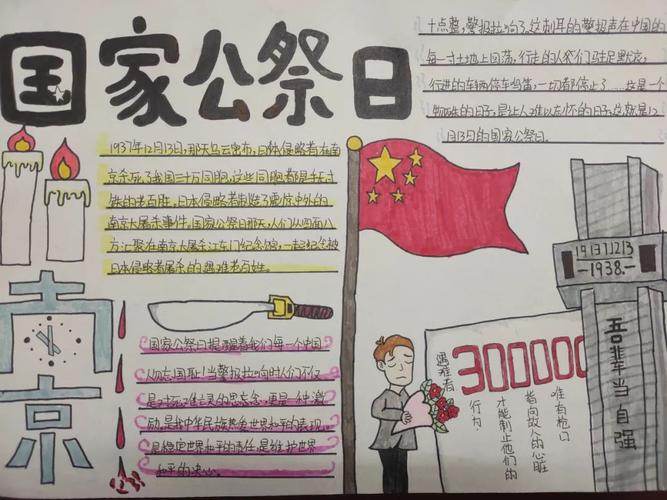 国家公祭日
十点整,警报拉响了,这刺耳的警报声在中国的
每一寸土地上回荡,行走的人们驻足默哀,
行进的车辆停车鸣笛,一切都停止了……这是一个
特殊的日子,是让人难以忘怀的日子,这就是12
月13日的国家公祭日。
1937年12月13日,那天乌云密布,日本侵略者在南
京杀死了我国三十万同胞,这些同胞都是手无寸
铁的老百姓。日本侵略者制造了震惊中外的
南京大屠杀事件。国家公祭日那天,人们从四面八
方汇聚在南京大屠杀江东门纪念馆,一起纪念被
日本侵略者屠杀的遇难老百姓。
南京
国家公祭日提醒着我们每一个中国
人勿忘国耻!当警报拉响时人们不仅
是对死难者的思念,更是一种激
励,是中华民族热爱世界和平的表现,
是稳定世界和平的责任,是维护世界
和平的决心。
遇难者
300000
唯有枪口
指向敌人的心脏
才能制止他们的
行为。
1937.12.13
—1938.—
吾辈当自强